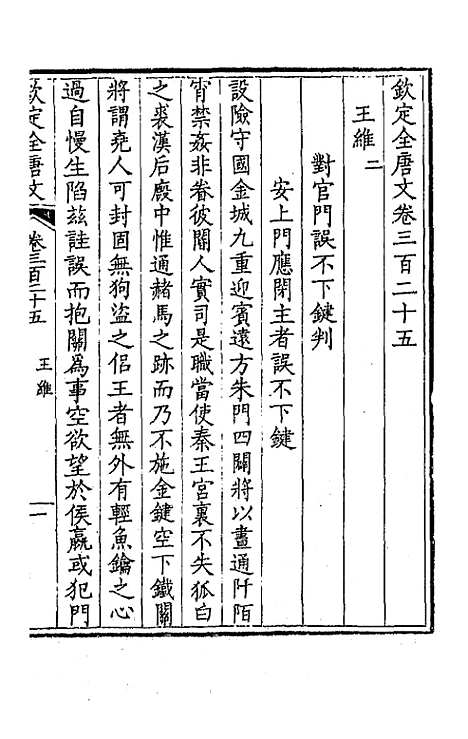 欽定全唐文卷三百二十五
王維二
對官門誤不下鍵判
安上門應閉主者誤不下鍵
設險守國金城九重迎賓遠方朱門四闢將以晝通阡陌
宵禁姦非眷彼閽人實司是職當使秦王宮裏不失狐白
之裘漢后廄中惟通赭馬之跡而乃不施金鍵空下鐵關
將謂堯人可封固無狗盜之侣王者無外有輕魚鑰之心
過自慢生陷茲詿誤而抱關爲事空欲望於侯嬴或犯門
欽定全唐文
卷三百二十五
王維
一